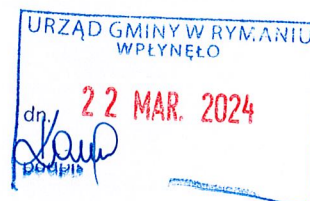 URZĄD GMINY W RYMANIU
WPŁYNĘŁO
dn. 22 MAR. 2024
podpis